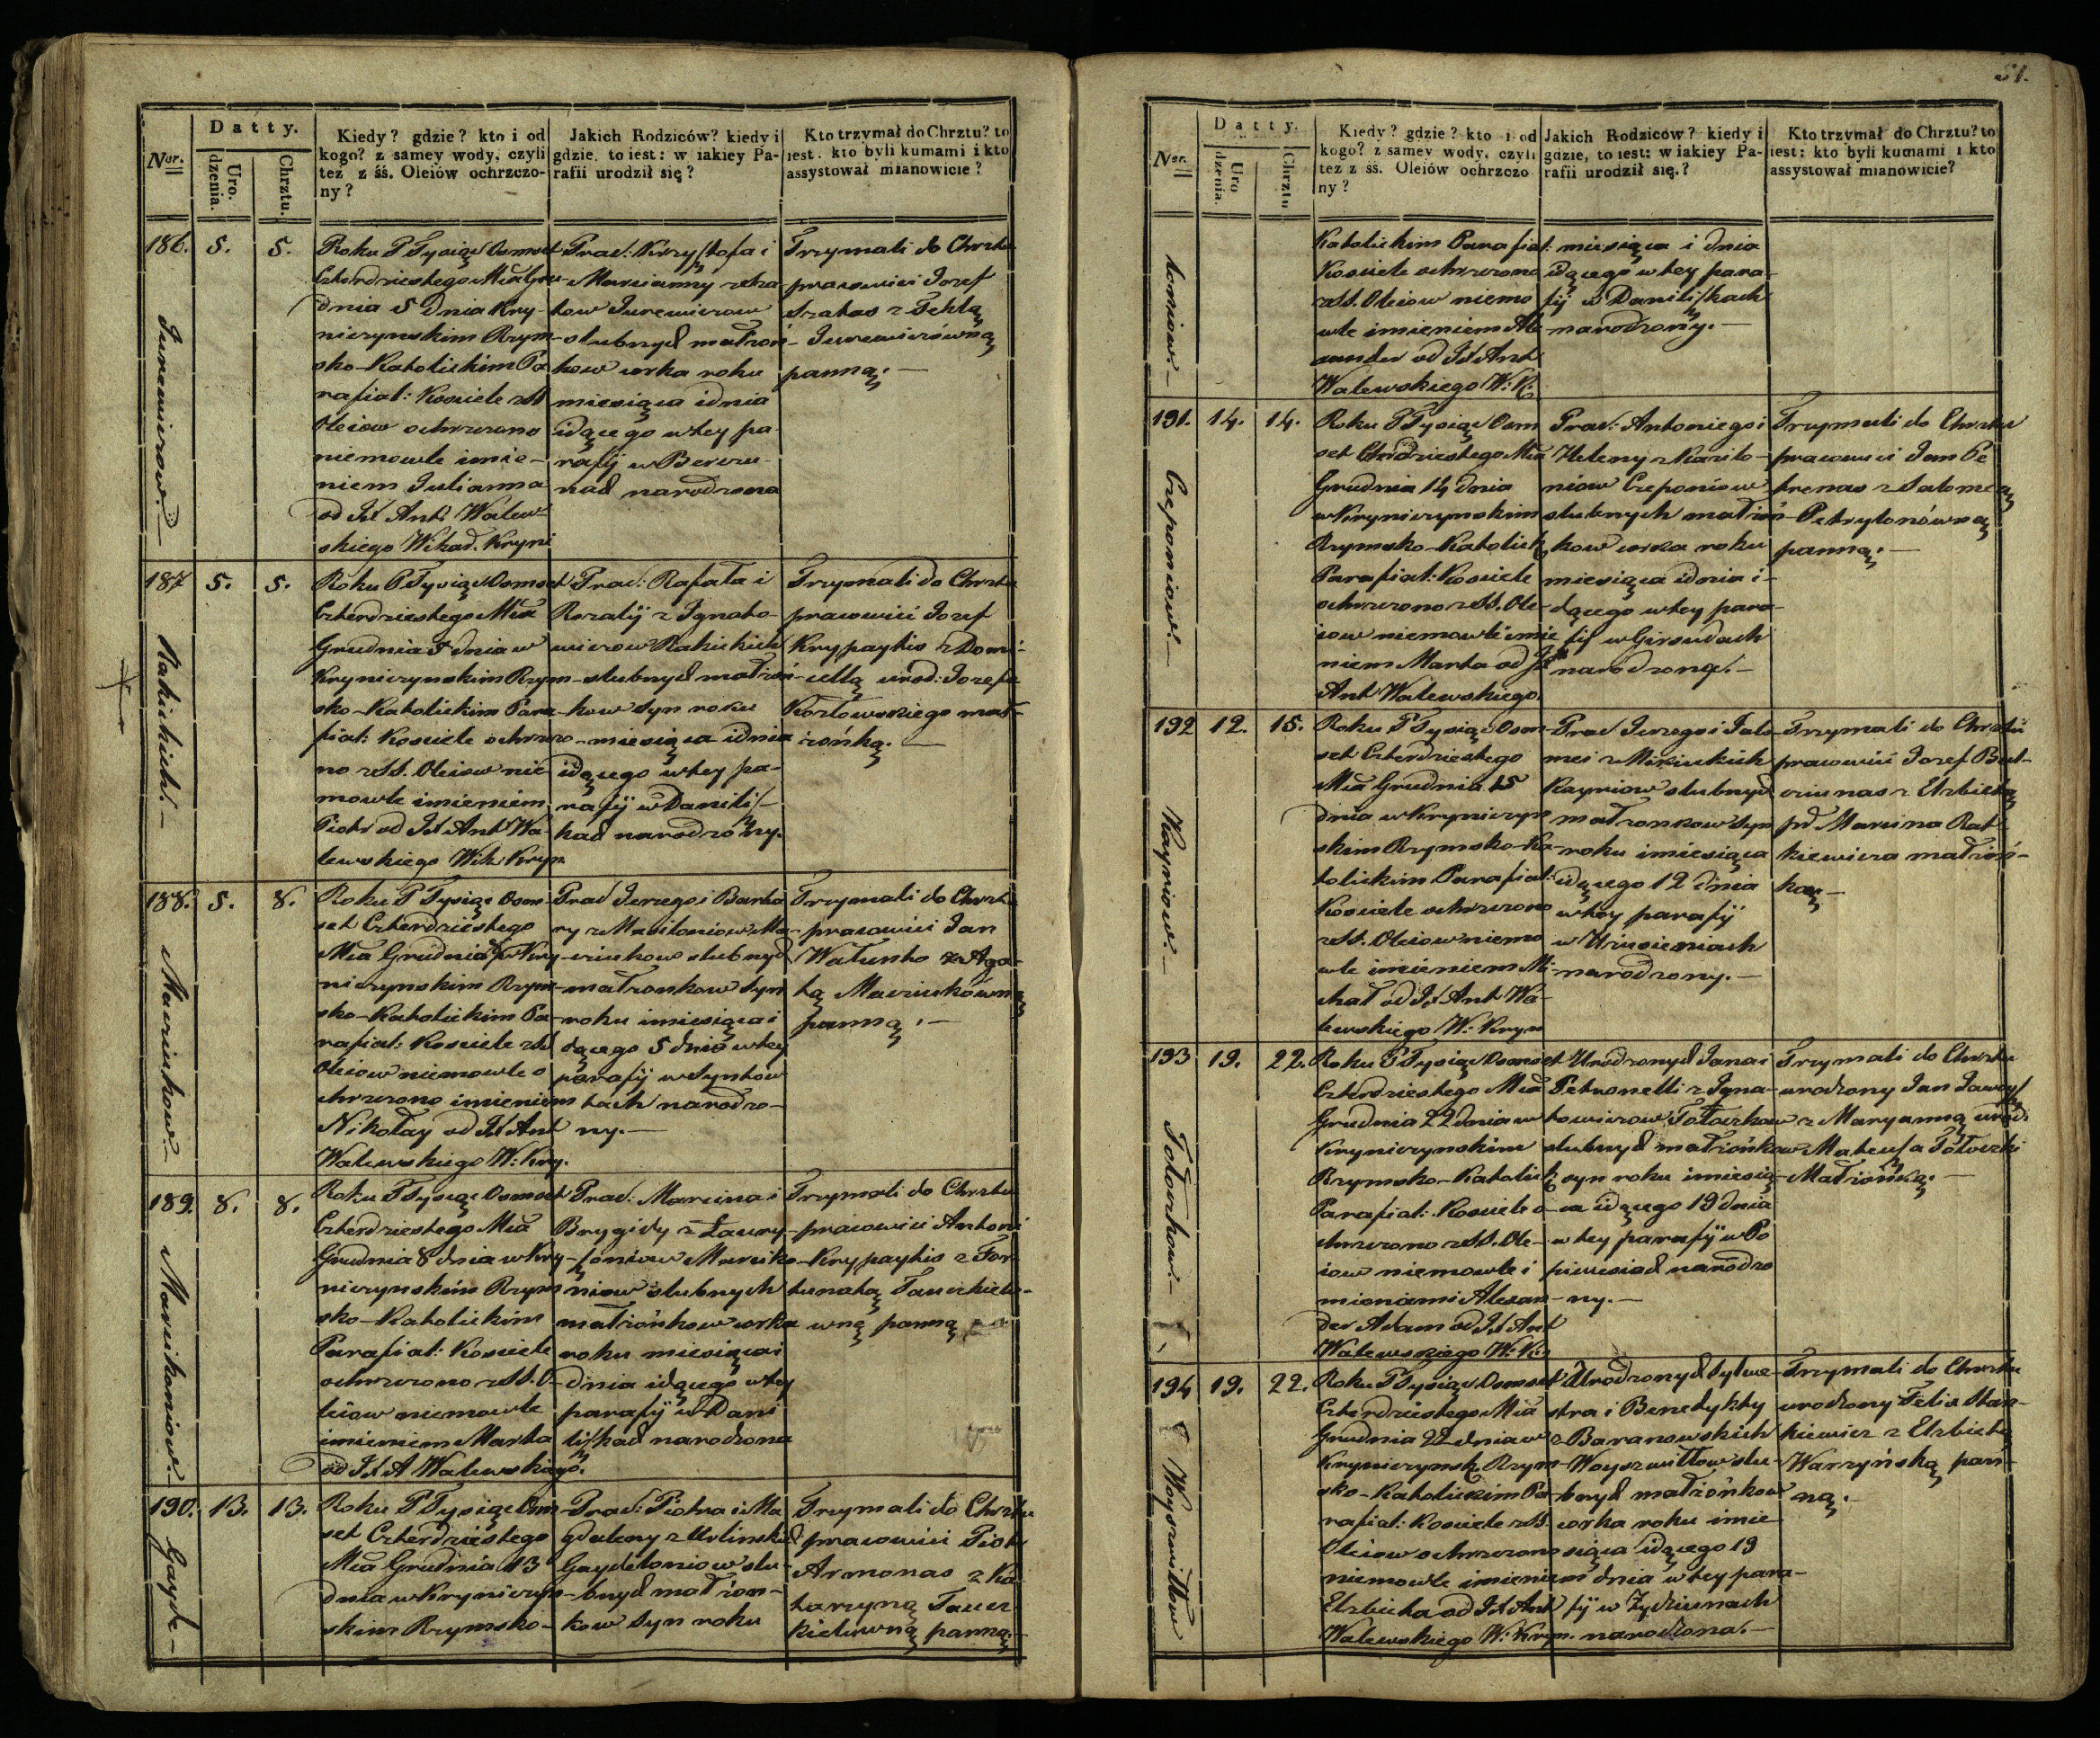 Ner.
Datty.
Uro.
dzenia.
Chrztu.
Kiedy? gdzie? kto i od
kogo? z samey wody, czyli
też z śś. Oleiów ochrzczo-
ny?
Jakich Rodziców? kiedy i
gdzie, to iest: w iakiey Pa-
rafii urodził się?
Kto trzymał do Chrztu? to
iest: kto byli kumami i kto
assystował mianowicie?
186. 5. 5.
Juncewiczow.
Roku P Tysiąc Osmset
Czterdziestego Mca Gru-
dnia 5 dnia Kry-
niczynskim Rzym-
sko-Katolickim Pa
rafial: Kosciele z SS
Oleiow ochrzczono
niemowle imie-
niem Julianna
od JX Ant Walew-
skiego Wikad. Kryni
Prac: Krzysztofa i
Marcianny z
tow Juncewiczow
slubnych małżoń-
kow corka roku
miesiąca i dnia
idącego w tey pa-
rafij w
nach narodzona
Trzymali do Chrztu
pracowici Jozef
Szatas z Teklą
Juncewiczówną
panną.—
187 5. 5.
Rakickich.—
Roku P Tysiąc Osmset
Czterdziestego Mca
Grudnia 5 dnia w
Kryniczynskim Rzym-
sko-Katolickim Para
fial: Kosciele ochrzczo-
no z SS. Oleiow nie
mowle imieniem
Piotr od JX Ant Wa-
lewskiego Wik Kryn
Prac: Rafała i
Rozalij z Ignato-
wiczow Rakickich
slubnych małżoń-
kow syn roku
miesiąca i dnia
idącego w tey pa-
rafij w Danilisz-
kach narodzony.
Trzymali do Chrztu
pracowici Jozef
Krypaytis z Domi-
cellą urod: Jozefa
Kozłowskiego mał-
żonką.—
188. 5. 8.
Maciukow.—
Roku P Tysiąc Osm-
set Czterdziestego
Mca Grudnia 8 w Kry-
niczynskim Rzym-
sko-Katolickim Pa-
rafial: Kosciele z SS
Oleiow niemowle o
chrzczono imieniem
Nikołay od JX Ant
Walewskiego W: Kry.
Prac Jerzego i Barba
ry z Ma-
ciukow slubnych
małżonkow syn
roku i miesiąca i
dącego 5 dnia w tey
parafij w Syntow
tach narodzo-
ny.—
Trzymali do Chrztu
pracowici Jan
Watunko z Aga-
tą Maciukówną
panną.—
189. 8. 8.
Marcikoniow.—
Roku P Tysiąc Osmset
Czterdziestego Mca
Grudnia 8 dnia w Kry-
niczynskim Rzym
sko-Katolickim
Parafial: Kosciele
ochrzczono z SS. O-
leiow niemowle
imieniem Marta
od JX A Walewskiego.
Prac: Marcina i
Brygidy z Ławry-
szoniow Marciko-
niow slubnych
małżonkow corka
roku miesiąca i
dnia idącego w tey
parafij w Dani
liszkach narodzona
Trzymali do Chrztu
pracowici Antoni
Krypaytis z For
tunatą Tauckiele-
wną panną
190. 13. 13.
Gayde—
Roku P Tysiąc Osm-
set Czterdziestego
Mca Grudnia 13
dnia w Kryniczyn-
skim Rzymsko-
Prac: Piotra i Ma
gdaleny z Uslinskich
Gaydetoniow slu-
bnych małżon-
kow syn roku
Trzymali do Chrztu
pracowici Piotr
Armonas z Ka-
tarzyną Taucz
kielewną panną.
51.
Ner.
Datty.
Uro
dzenia.
Chrztu
Kiedy? gdzie? kto i od
kogo? z samey wody, czyli
też z śś. Oleiów ochrzczo
ny?
Jakich Rodziców? kiedy i
gdzie, to iest: w iakiey Pa-
rafii urodził się.?
Kto trzymał do Chrztu? to
iest: kto byli kumami i kto
assystował mianowicie?
toniow.—
Katolickim Parafial:
Kosciele ochrzczono
z SS. Oleiow niemo
wle imieniem Ale
xander od JX Ant
Walewskiego W: K:
miesiąca i dnia
idącego w tey para-
fij w Daniliszkach
narodzony.—
191. 14. 14.
Czeponiow.—
Roku P Tysiąc Osm
set Czterdziestego Mca
Grudnia 14 dnia
w Kryniczynskim
Rzymsko-Katolick
Parafial: Kosciele
ochrzczono z SS. Ole-
iow niemowle imie
niem Marta od JX
Ant Walewskiego
Prac: Antoniego i
Heleny z Kazilo-
niow Czeponiow
slubnych małżoń-
kow corka roku
miesiąca i dnia i-
dącego w tey para-
fij w Girsudach
narodzona.—
Trzymali do Chrztu
pracowici Jan Pe
trenas z Salomeą
Petrylonówną
panną.—
192 12. 15.
Kayriow.—
Roku P Tysiąc Osm-
set Czterdziestego
Mca Grudnia 15
dnia w Kryniczyn
skim Rzymsko-Ka-
tolickim Parafial:
Kosciele ochrzczono
z SS. Oleiow niemo
wle imieniem Mi-
chał od JX Ant Wa-
lewskiego W: Kryn
Prac Jerzego i Salo-
mei z Mickiuckich
Kayriow slubnych
małżonkow syn
roku i miesiąca
idącego 12 dnia
w tey parafij
w
narodzony.—
Trzymali do Chrztu
pracowici Jozef But-
z Elzbietą
pr Marcina Rat-
kiewicza małżon-
ką.—
193 19. 22.
Tołoczkow.—
Roku P Tysiąc Osmset
Czterdziestego Mca
Grudnia 22 dnia w
Kryniczynskim
Rzymsko-Katolick
Parafial: Kosciele o-
chrzczono z SS. Ole-
iow niemowle i
mionami Alexan-
der Adam od JX Ant
Walewskiego W: K:
Urodzonych Jana i
Petronelli z Igna-
towiczow Tołoczkow
slubnych małżonkow
syn roku i miesią-
ca idącego 19 dnia
w tey parafij w Po
piwesiach narodzo
ny.—
Trzymali do Chrztu
urodzony Jan Jawoysz
z Maryanną urodz
Mateusza Tołoczki
Małżonką.—
194 19. 22.
Woyszwiłłow
Roku P Tysiąc Osmset
Czterdziestego Mca
Grudnia 22 dnia w
Kryniczynsk Rzym-
sko-Katolickim Pa-
rafial: Kosciele z SS.
Oleiow ochrzczono
niemowle imieniem
Elzbieta od JX Ant
Walewskiego W: Kryn.
Urodzonych Sylwe-
stra i Benedykty
z Baranowskich
Woyszwiłłow slu-
bnych małżonkow
corka roku i mie
siąca idącego 19
dnia w tey para-
fij w Żydziunach
narodzona.—
Trzymali do Chrztu
urodzony Felix Stan-
kiewicz z Elzbietą
Warzyńską pan-
ną.—